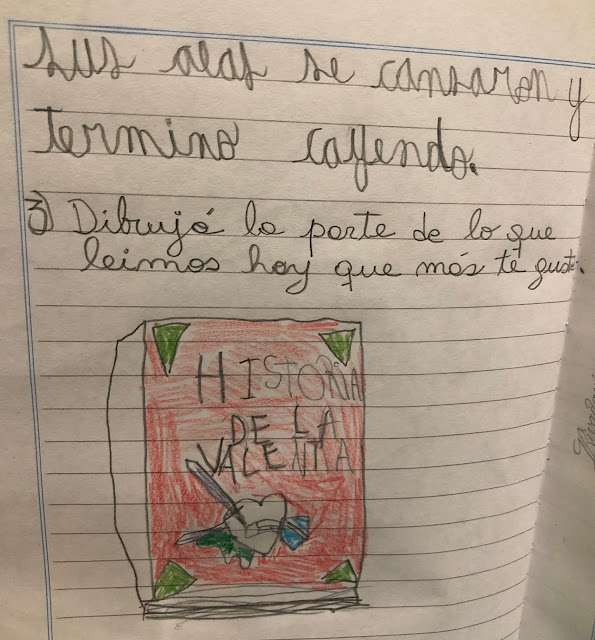 sus alas se cansaron y
termino callendo.
3) Dibujá la parte de lo que
leimos hoy que más te gustó.
HISTORIA
DE LA
VALENTIA